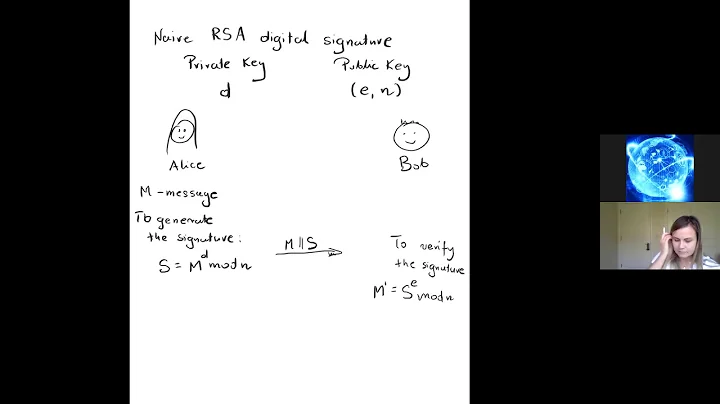 Naive RSA digital signature
Private Key
Public Key
d
(e, n)
Alice
Bob
M - message
To generate
the signature:
S = M^d mod n
M || S
To verify
the signature
M' = S^e mod n